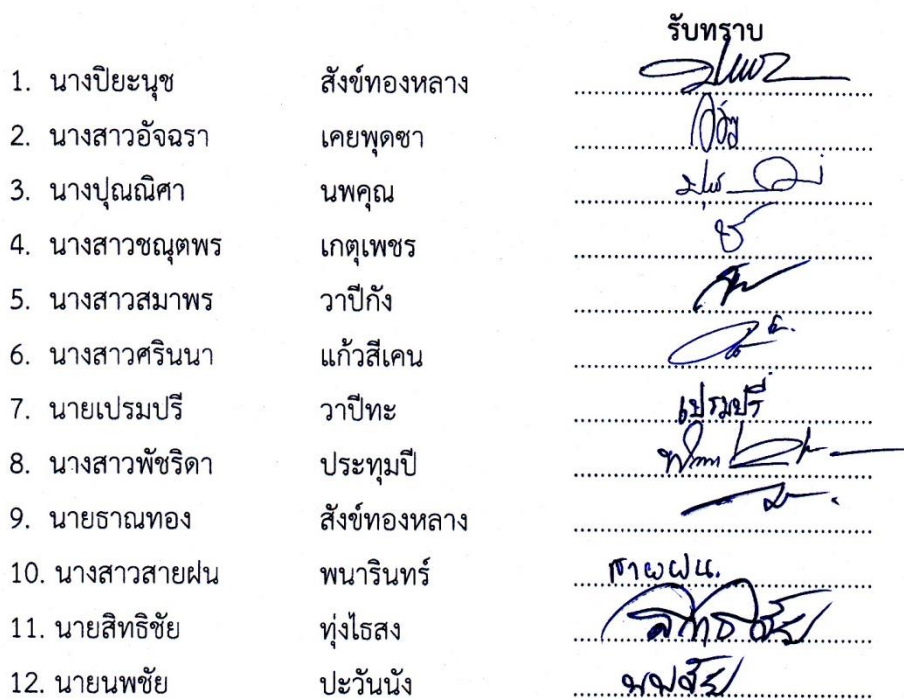 รับทราบ
1. นางปิยะนุช สังข์ทองหลาง
2. นางสาวอัจฉรา เคยพุดซา
3. นางปุณณิศา นพคุณ
4. นางสาวชณุตพร เกตุเพชร
5. นางสาวสมาพร วาปีกัง
6. นางสาวศรินนา แก้วสีเคน
7. นายเปรมปรี วาปีทะ เปรมปรี
8. นางสาวพัชริดา ประทุมปี
9. นายธาณทอง สังข์ทองหลาง
10. นางสาวสายฝน พนารินทร์ สายฝน.
11. นายสิทธิชัย ทุ่งไธสง สิทธิชัย
12. นายนพชัย ปะวันนัง นพชัย